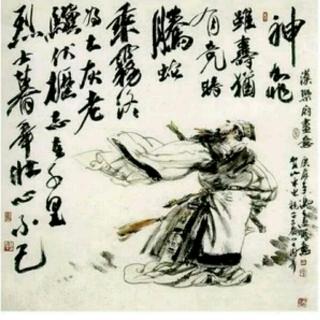 神龜
雖壽猶
有竟時
騰蛇
乘霧終
為土灰老
驥伏櫪志在千里
烈士暮年壯心不已
漢樂府畫意